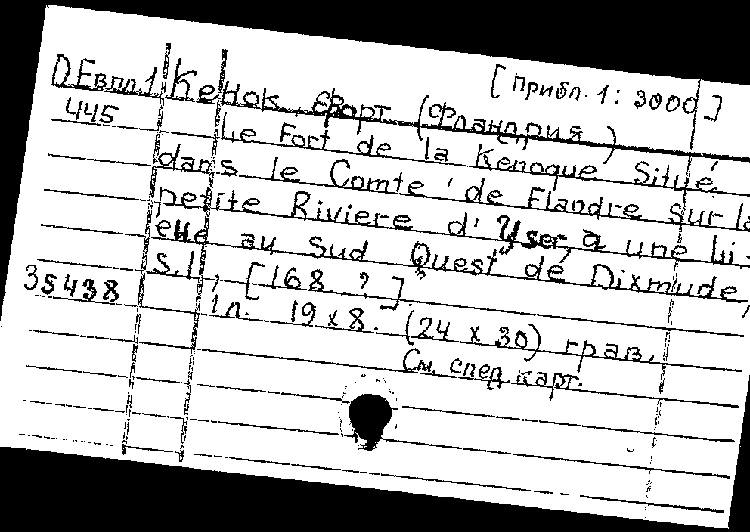 [Прибл. 1: 3000]
D Евпл.1 Кенок, форт (Фландрия)
445 Le Fort de la Kenoque Situé
dans le Comte de Flandre sur la
petite Riviere d' Yser, a une li-
eue au Sud Quest de Dixmude,
S.l., [168 ?]
35438 1л. 19 x 8. (24 x 30) грав.
См. спец. карт.